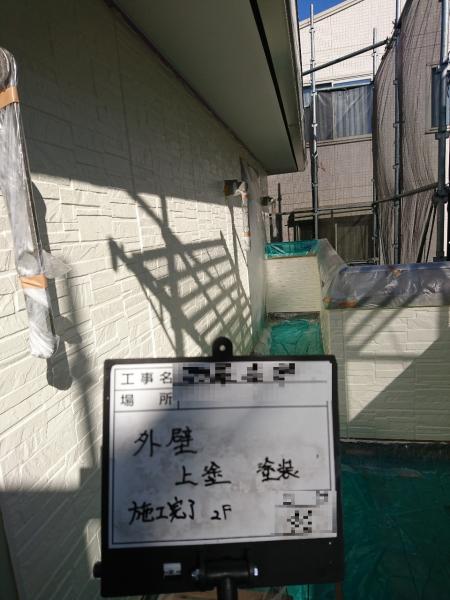 工事名
場所
外壁
上塗 塗装
施工完了 2F